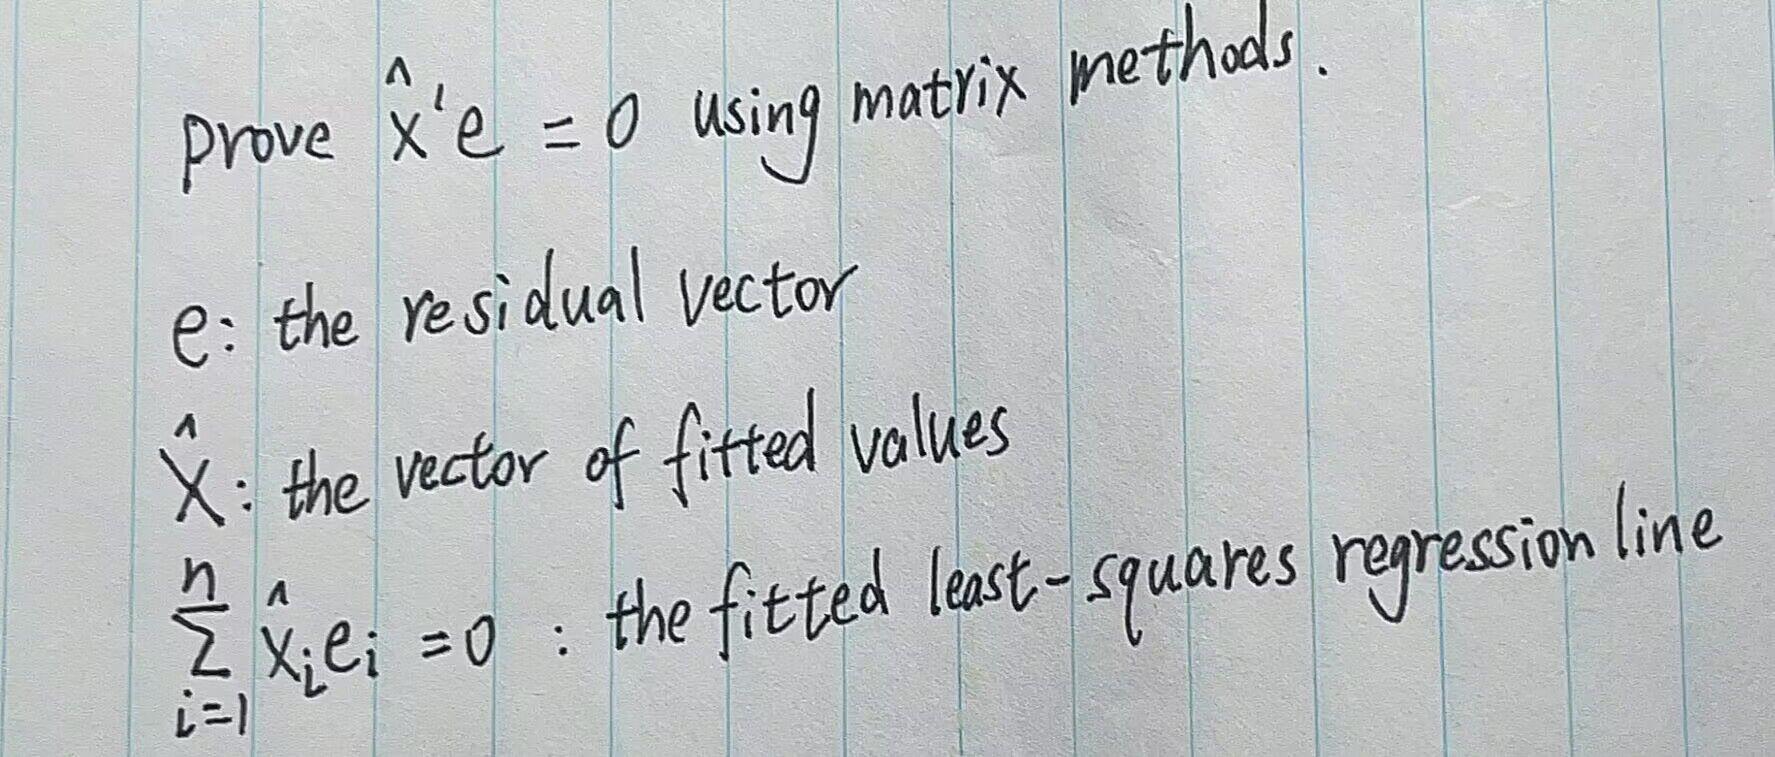 prove x̂'e = 0 using matrix methods.
e: the residual vector
x̂: the vector of fitted values
∑ᵢ₌₁ⁿ x̂ᵢeᵢ = 0 : the fitted least-squares regression line